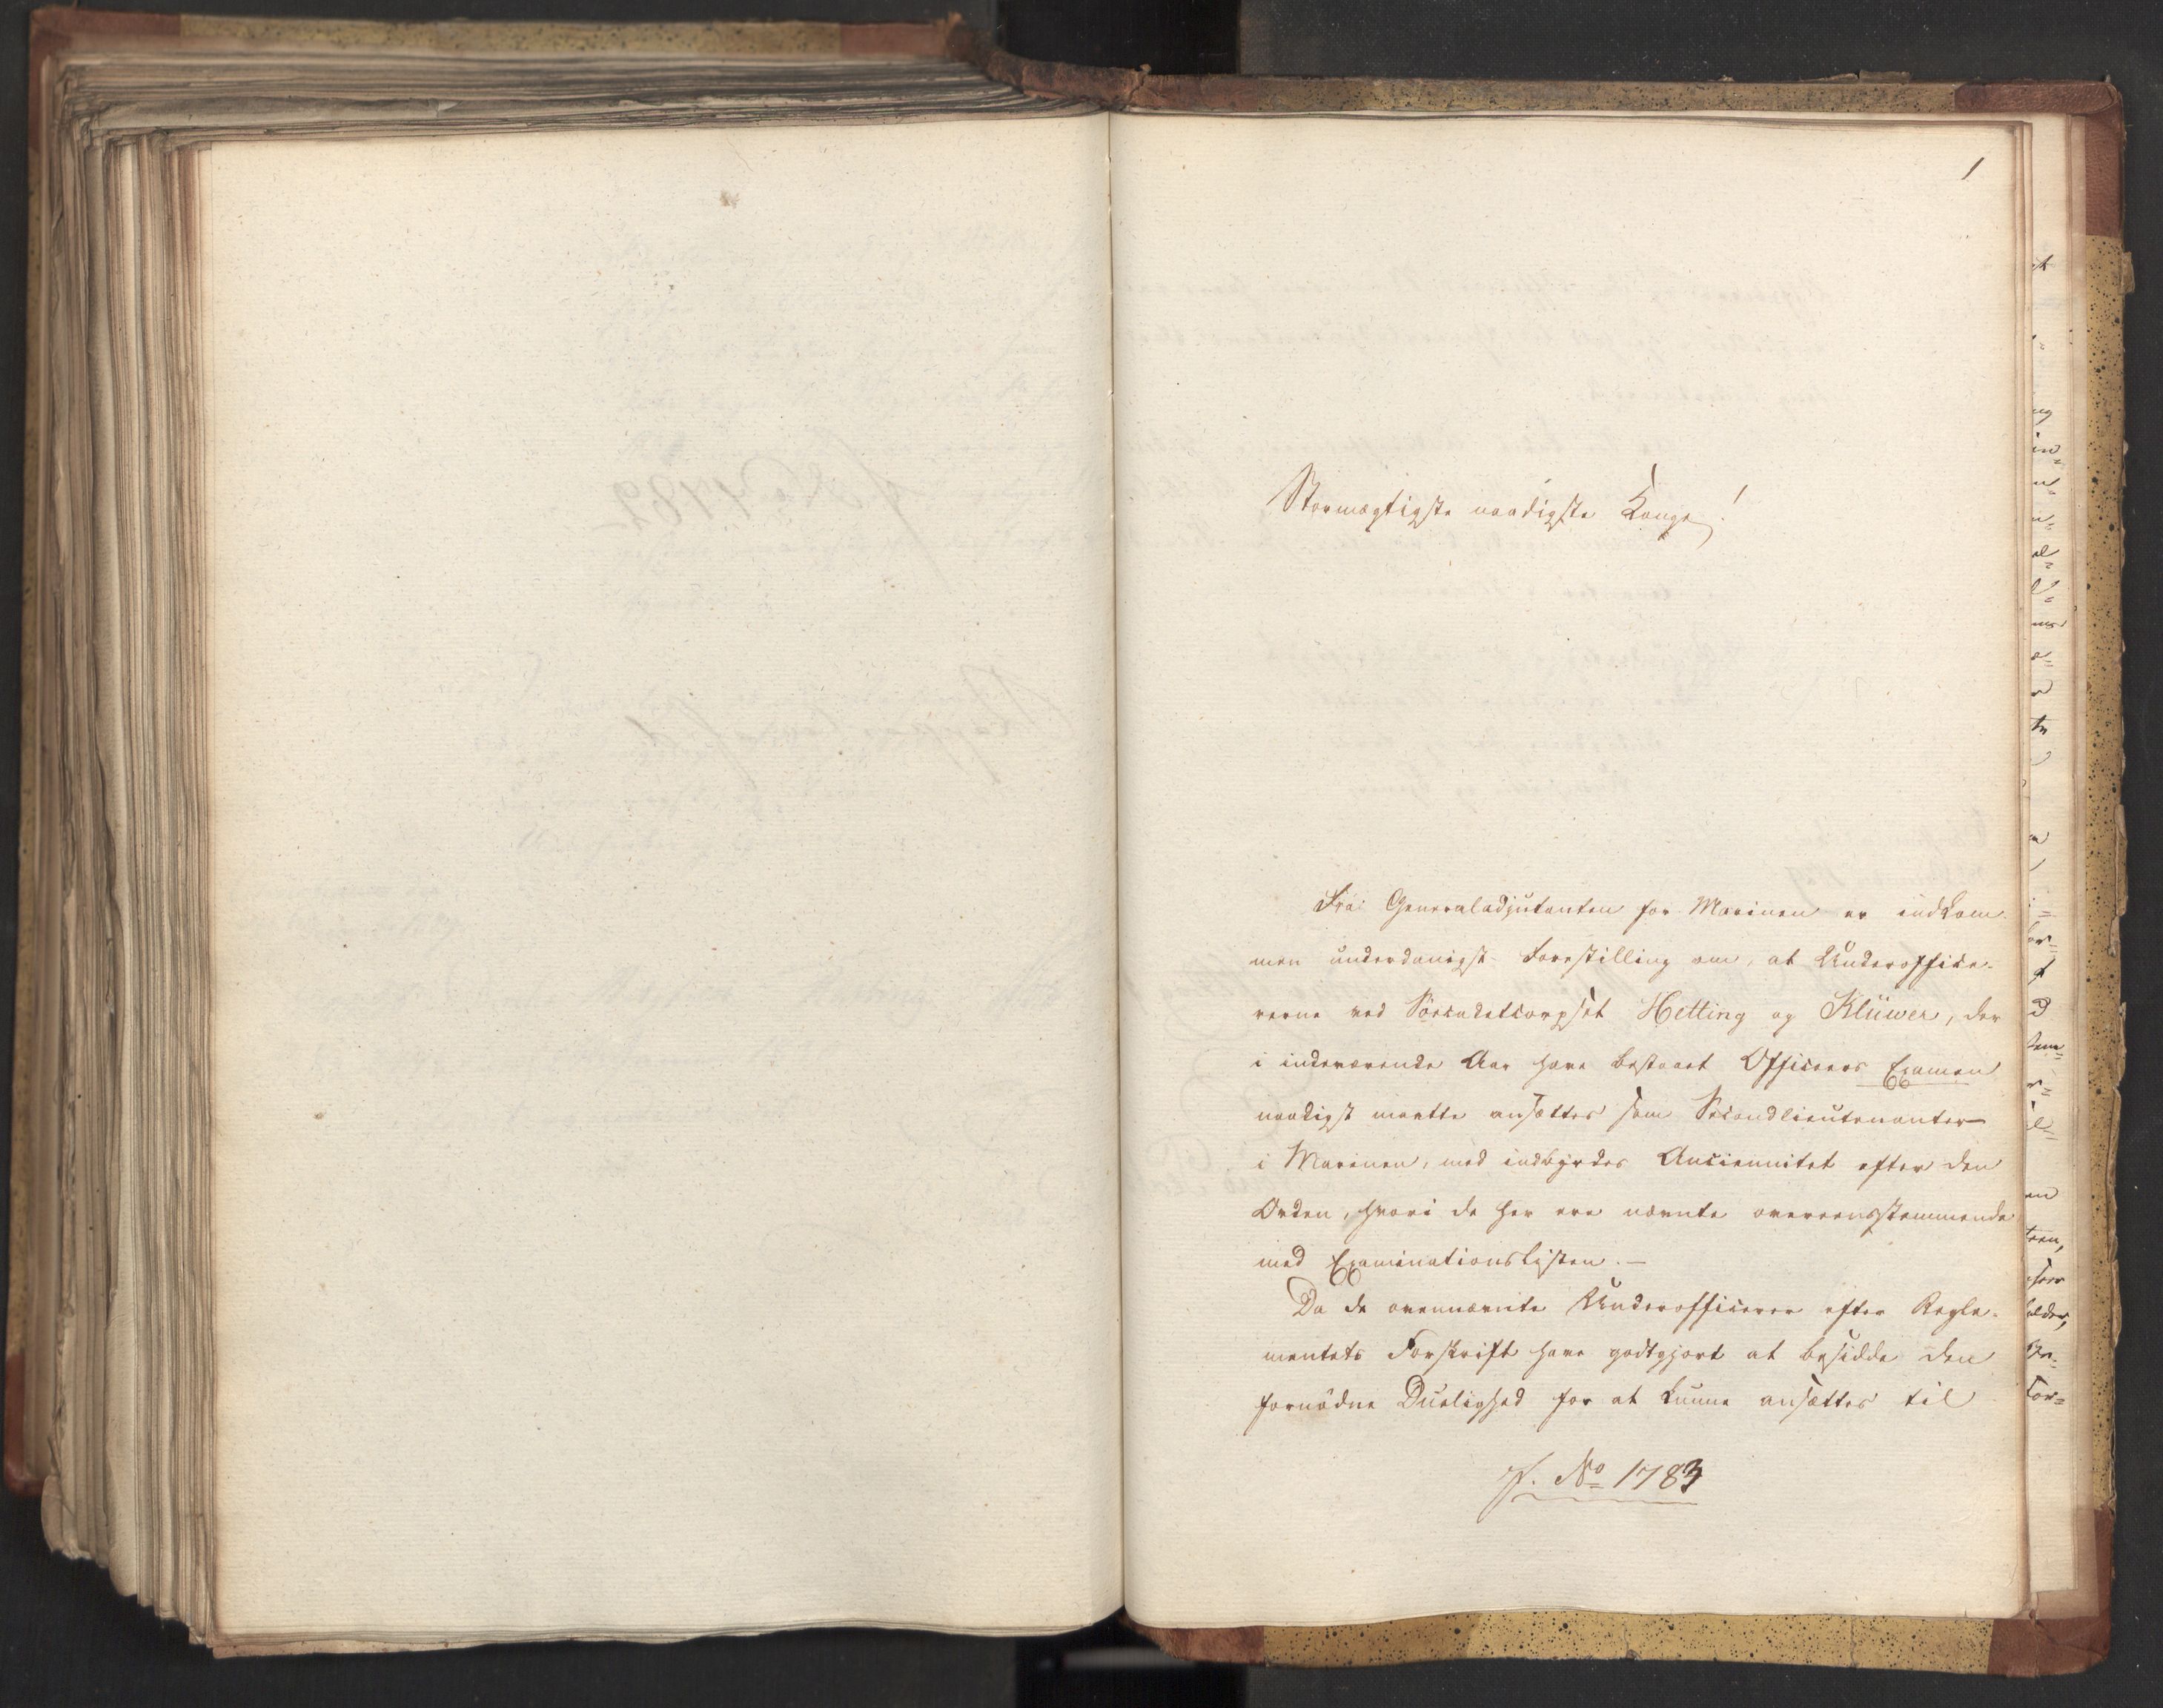 1
Stormægtigste naadigste Konge!
Fra Generaladjutanten for Marinen er indkom-
men underdanigst Forestilling om, at Underoffice-
rerne ved Söecadetcorpset Hetting og Klüwer, der
i indeværende Aar have bestaaet Officeers Examen
naadigst maatte ansættes som Secondlieutenanter
i Marinen, med indbyrdes Anciennitet efter den
Orden, hvori de her ere nævnte overeensstemmende
med Examinationslisten. —
Da de ovennævnte Underofficerer efter Regle-
mentets Forskrift have godtgjort at besidde den
fornödne Duelighed for at kunne ansættes til
J. No 1783